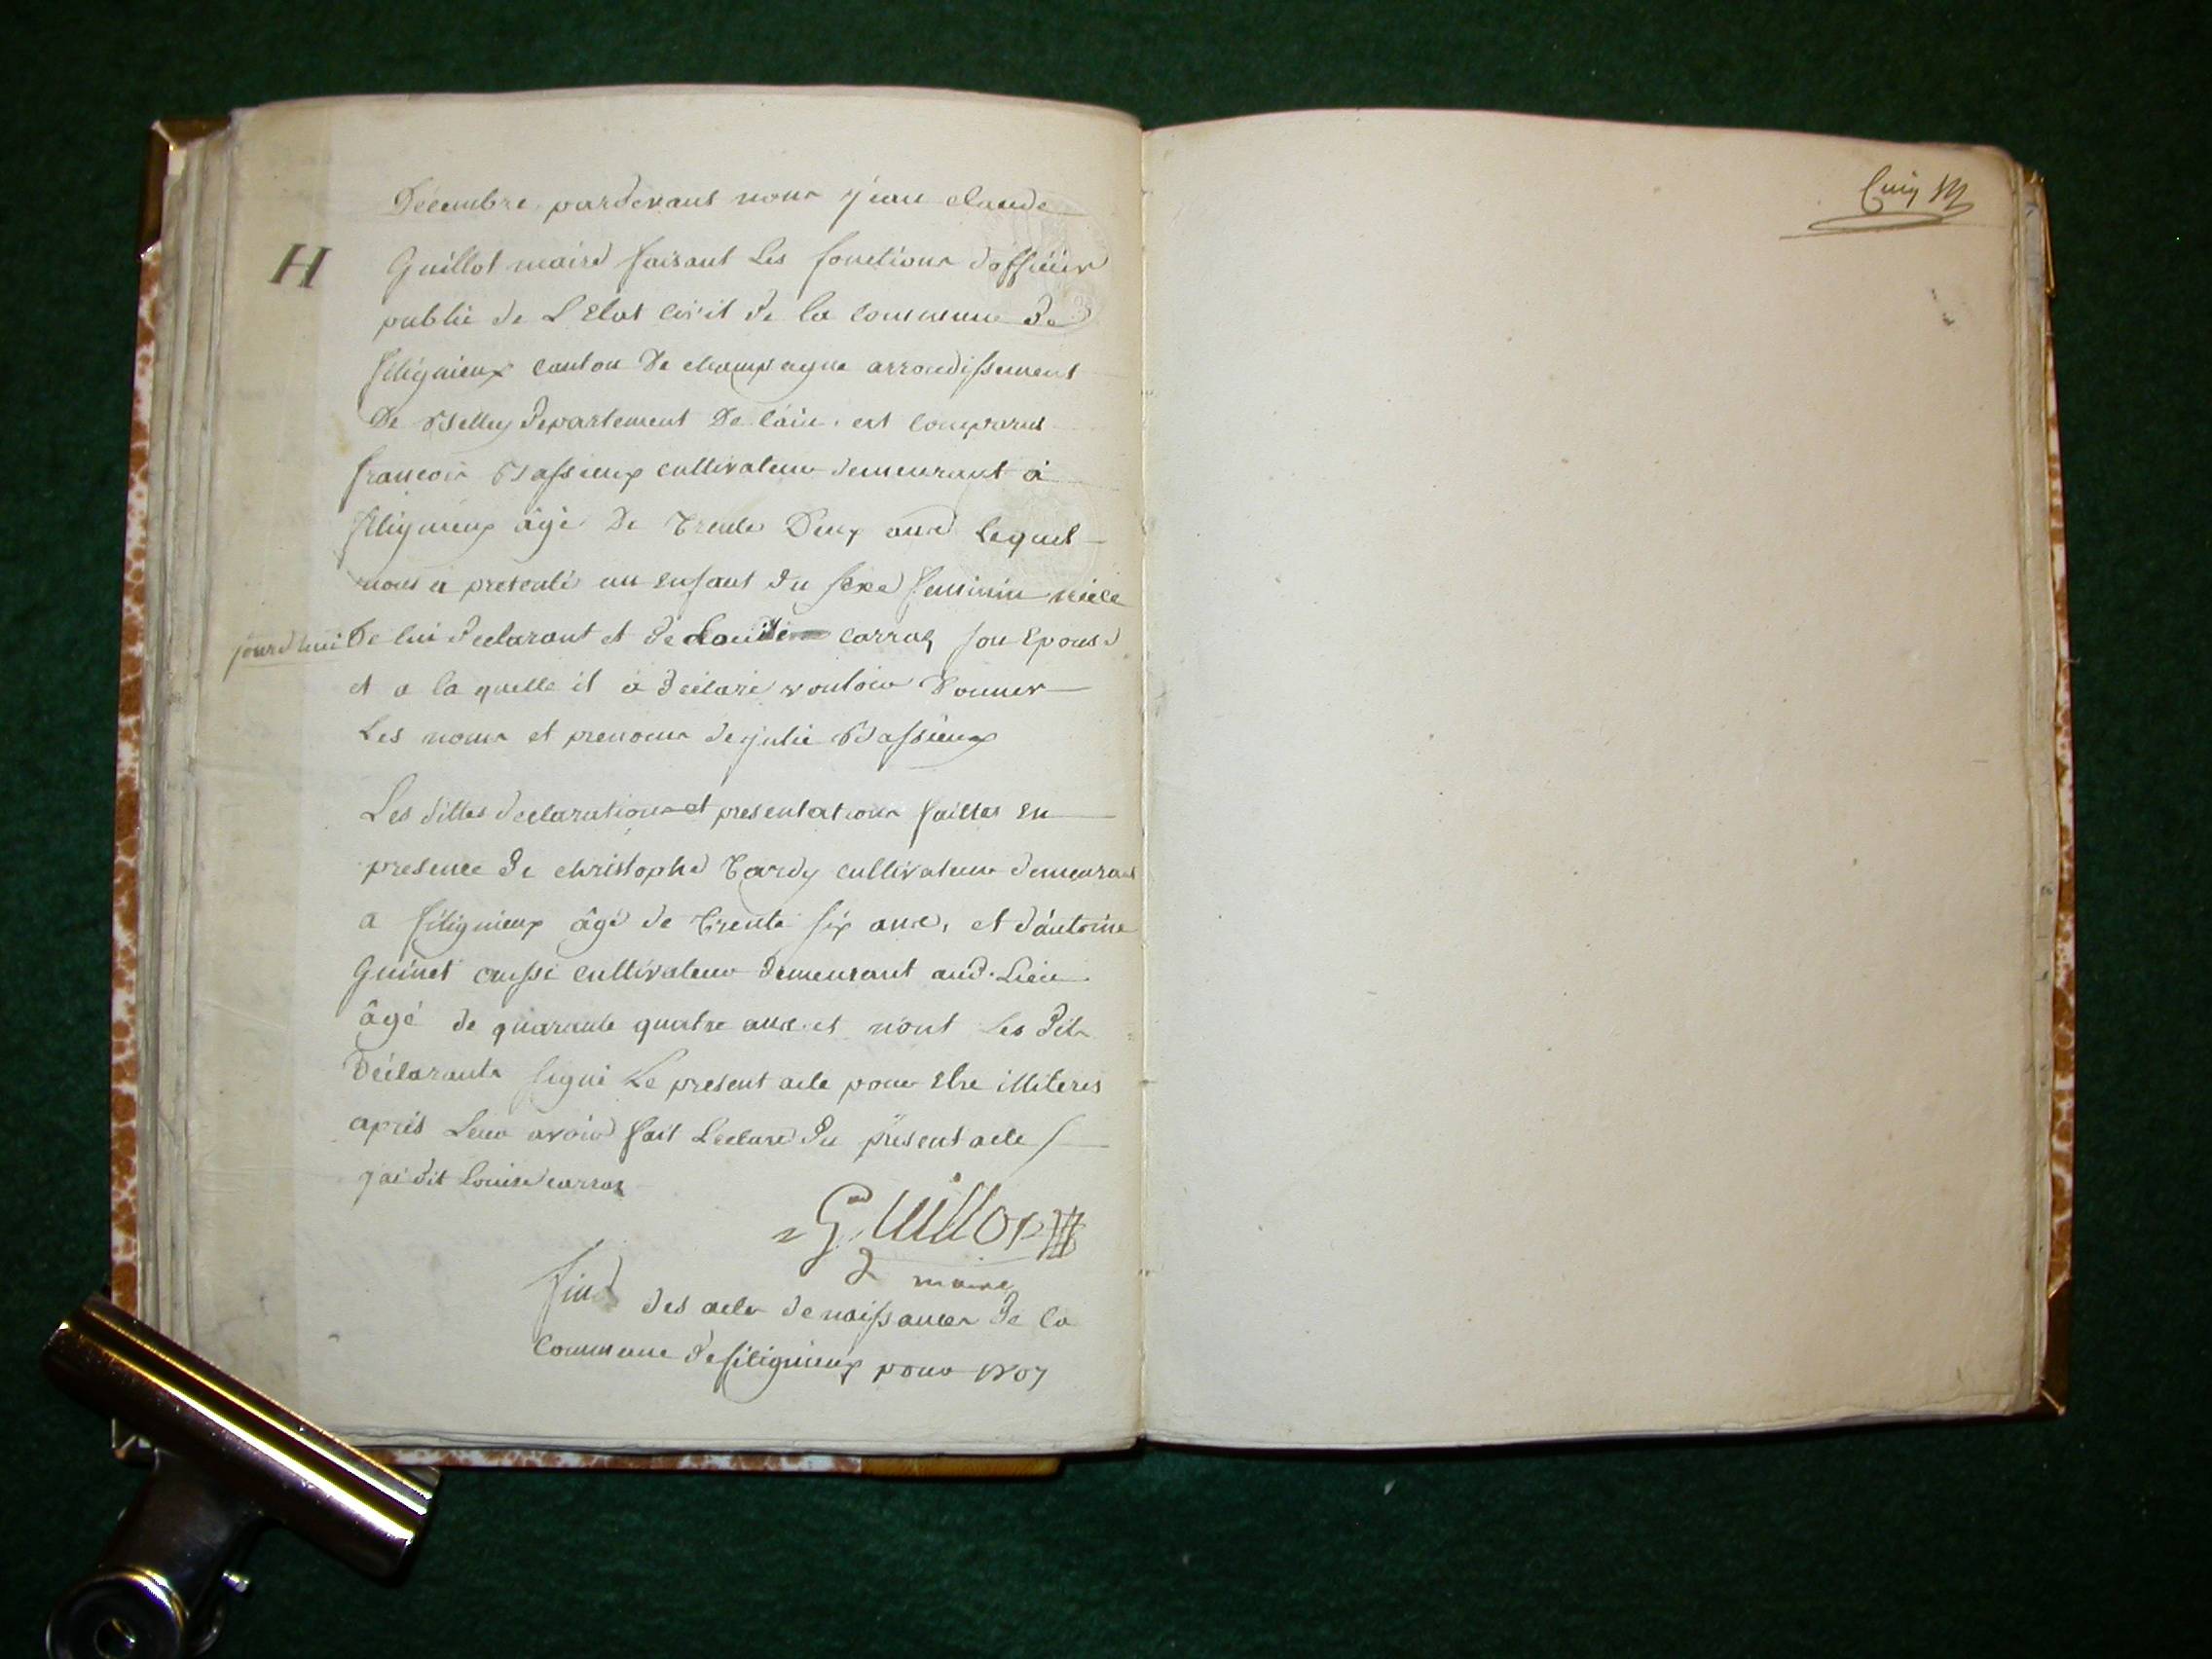 Décembre pardevant nous jean claude
H
Guillot maire faisant Les fonctions dofficier
public de L'Etat civil de la commune de
Selignieux canton de champagne arrondissement
De Belley departement De l'ain. est comparus
francois Bassieux cultivateur demeurant à
Selignieux âgé De trente Deux ans lequel
nous à presenté un enfant du sexe feminin néé ce
jourd'hui De lui declarant et de Louise carraz son Epouse
et a la quelle il à déclaré vouloir Donner
Les noms et prenoms de julie Bassieux
Les dittes declarations et presentations faittes En
presence De christophe tardy cultivateur demeurant
a Selignieux âgé de trente six ans, et d'antoine
Guinet aussi cultivateur demeurant aud. Lieu
âgé de quarante quatre ans. et n'ont Les Dits
Déclarants signé Le present acte pour Etre illiteres
après Leur avoir fait Lecture du present acte /
j'ai dit Louise carraz
Guillot
maire
fin des actes de naissances De la
Commune De Selignieux pour 1807